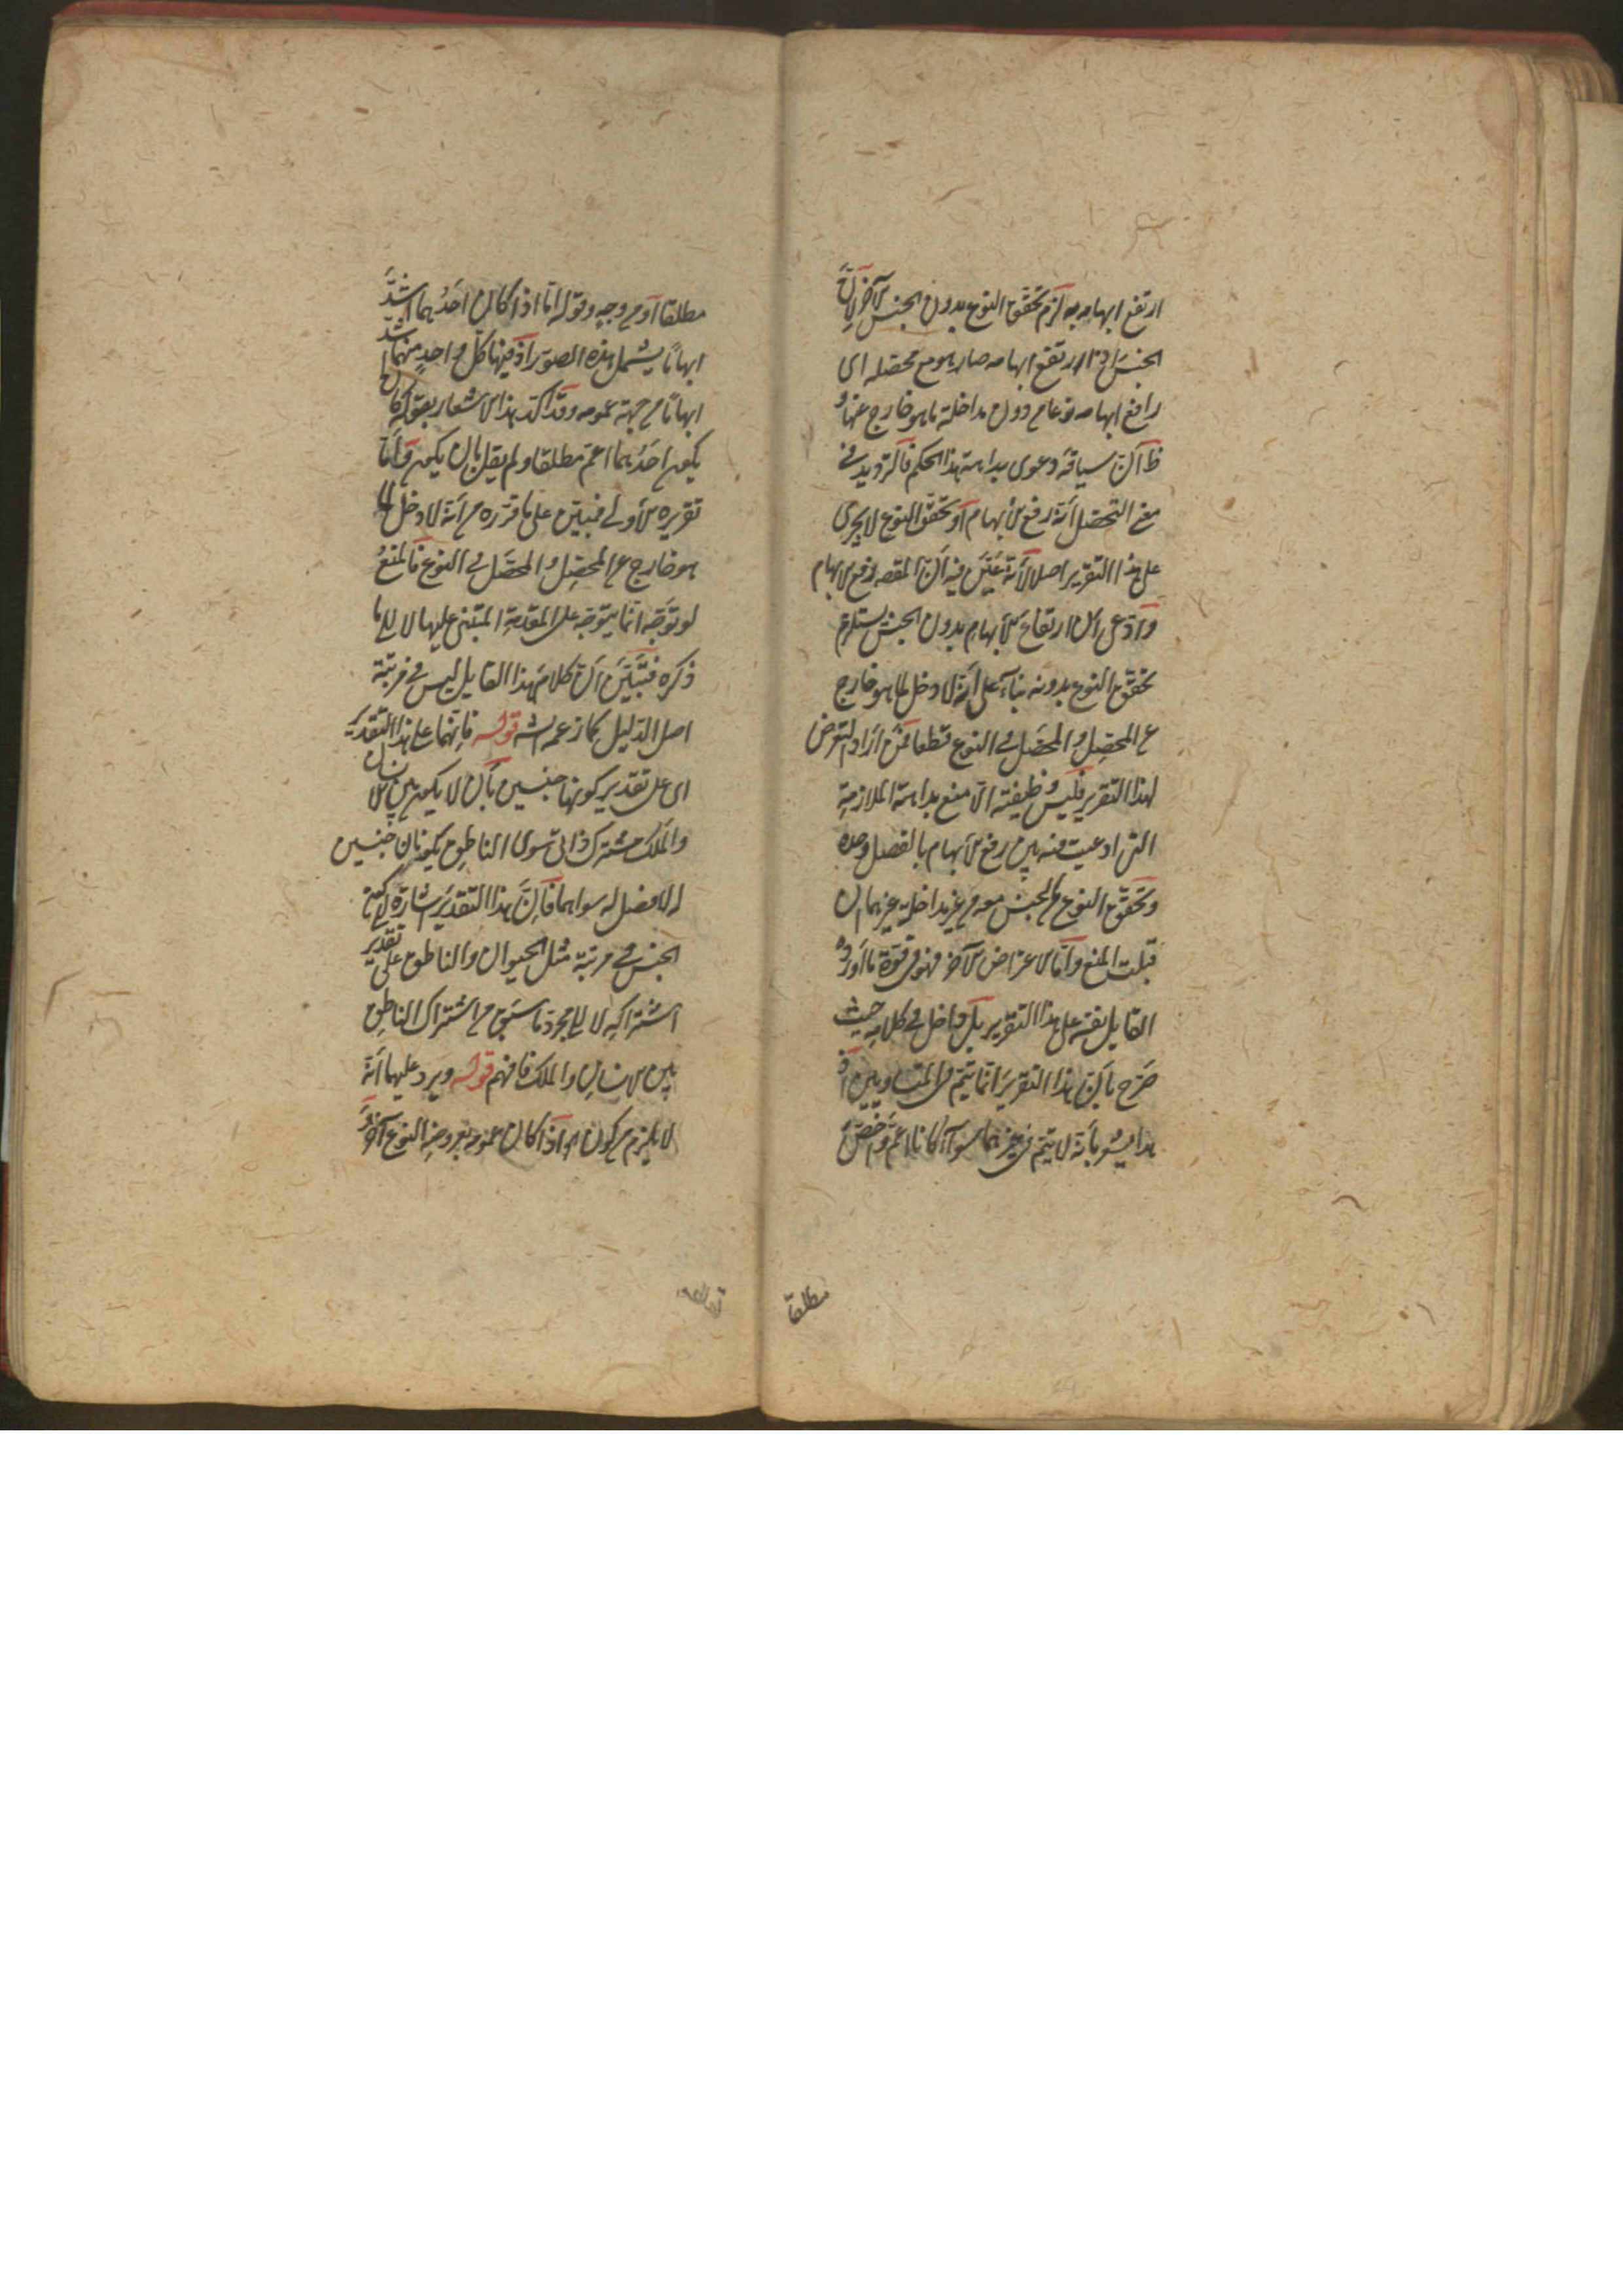 ارتفع ابهامه به لزم تحقق النوع بدون الجنس الآخر لان
الجنس اذا ارتفع ابهامه صار هو مع محصله اى
رافع ابهامه نوعا من دون مداخلة ما هو خارج عنها و
ظ ان سياقه دعوى بداهة هذا الحكم فالترديد فى
معنى التحصل أنه رفع الابهام أو تحقق النوع لا يجرى
على هذا التقرير اصلا لأنه عين فيه ان المقصود رفع الابهام
وادعى ان ارتفاع الابهام بدون الجنس يستلزم
تحقق النوع بدونه بناء على أنه لا دخل لما هو خارج
عن المحصِل والمحصَل فى النوع قطعا فمن أراد التعرض
لهذا التقرير فليس وظيفته الا منع بداهة الملازمة
التى ادعيت فيه بين رفع الابهام بالفصل وحده
وتحقق النوع والجنس معه من غير مداخلية غيرهما ان
قبلت المنع وأما الاعتراض الآخر فهو فى قوة ما أورده
القايل نفسه على هذا التقرير بل داخل فى كلامه حيث
صرح بأن هذا التقرير انما يتم فى المتساويين اذ
هذا يشعر بأنه لا يتم فى غيرهما سواء كانا اعم واخص
مطلقا
مطلقا أو من وجه وقوله اما اذا كان احدهما اشد
ابهاما يشمل هذه الصور اذ فيها كل واحد منهما اشد
ابهاما من جهة عمومه وقد اكد هذا الاشعار بقوله كان
يكون احدهما اعم مطلقا ولم يقل بان يكون وأما
تقريره الأول فمبتن على ما قرره من أنه لا دخل لما
هو خارج عن المحصِل والمحصَل فى النوع فالمنع
لو توجه انما يتوجه على المقدمة المبتنى عليها لا الى ما
ذكره فتبين أن كلام هذا القايل ليس فى مرتبة
اصل الدليل كما زعمه الش قوله فانهما على هذا التقدير
اى على تقدير كونهما جنسين بأن لا يكون بين الانسان
والملك مشترك ذاتى سوى الناطق يكونان جنسين
له لا فصل له سواهما فان هذا التقدير اشارة الى كون
الجنس فى مرتبة مثل الحيوان والناطق على تقدير
اشتراكه لا الى مجرد ما سبق من اشتراك الناطق
بين الانسان والملك فافهم قوله ويرد عليهما أنه
لا يلزم من كون اه اذا كان عموم بعروضه النوع آخر و